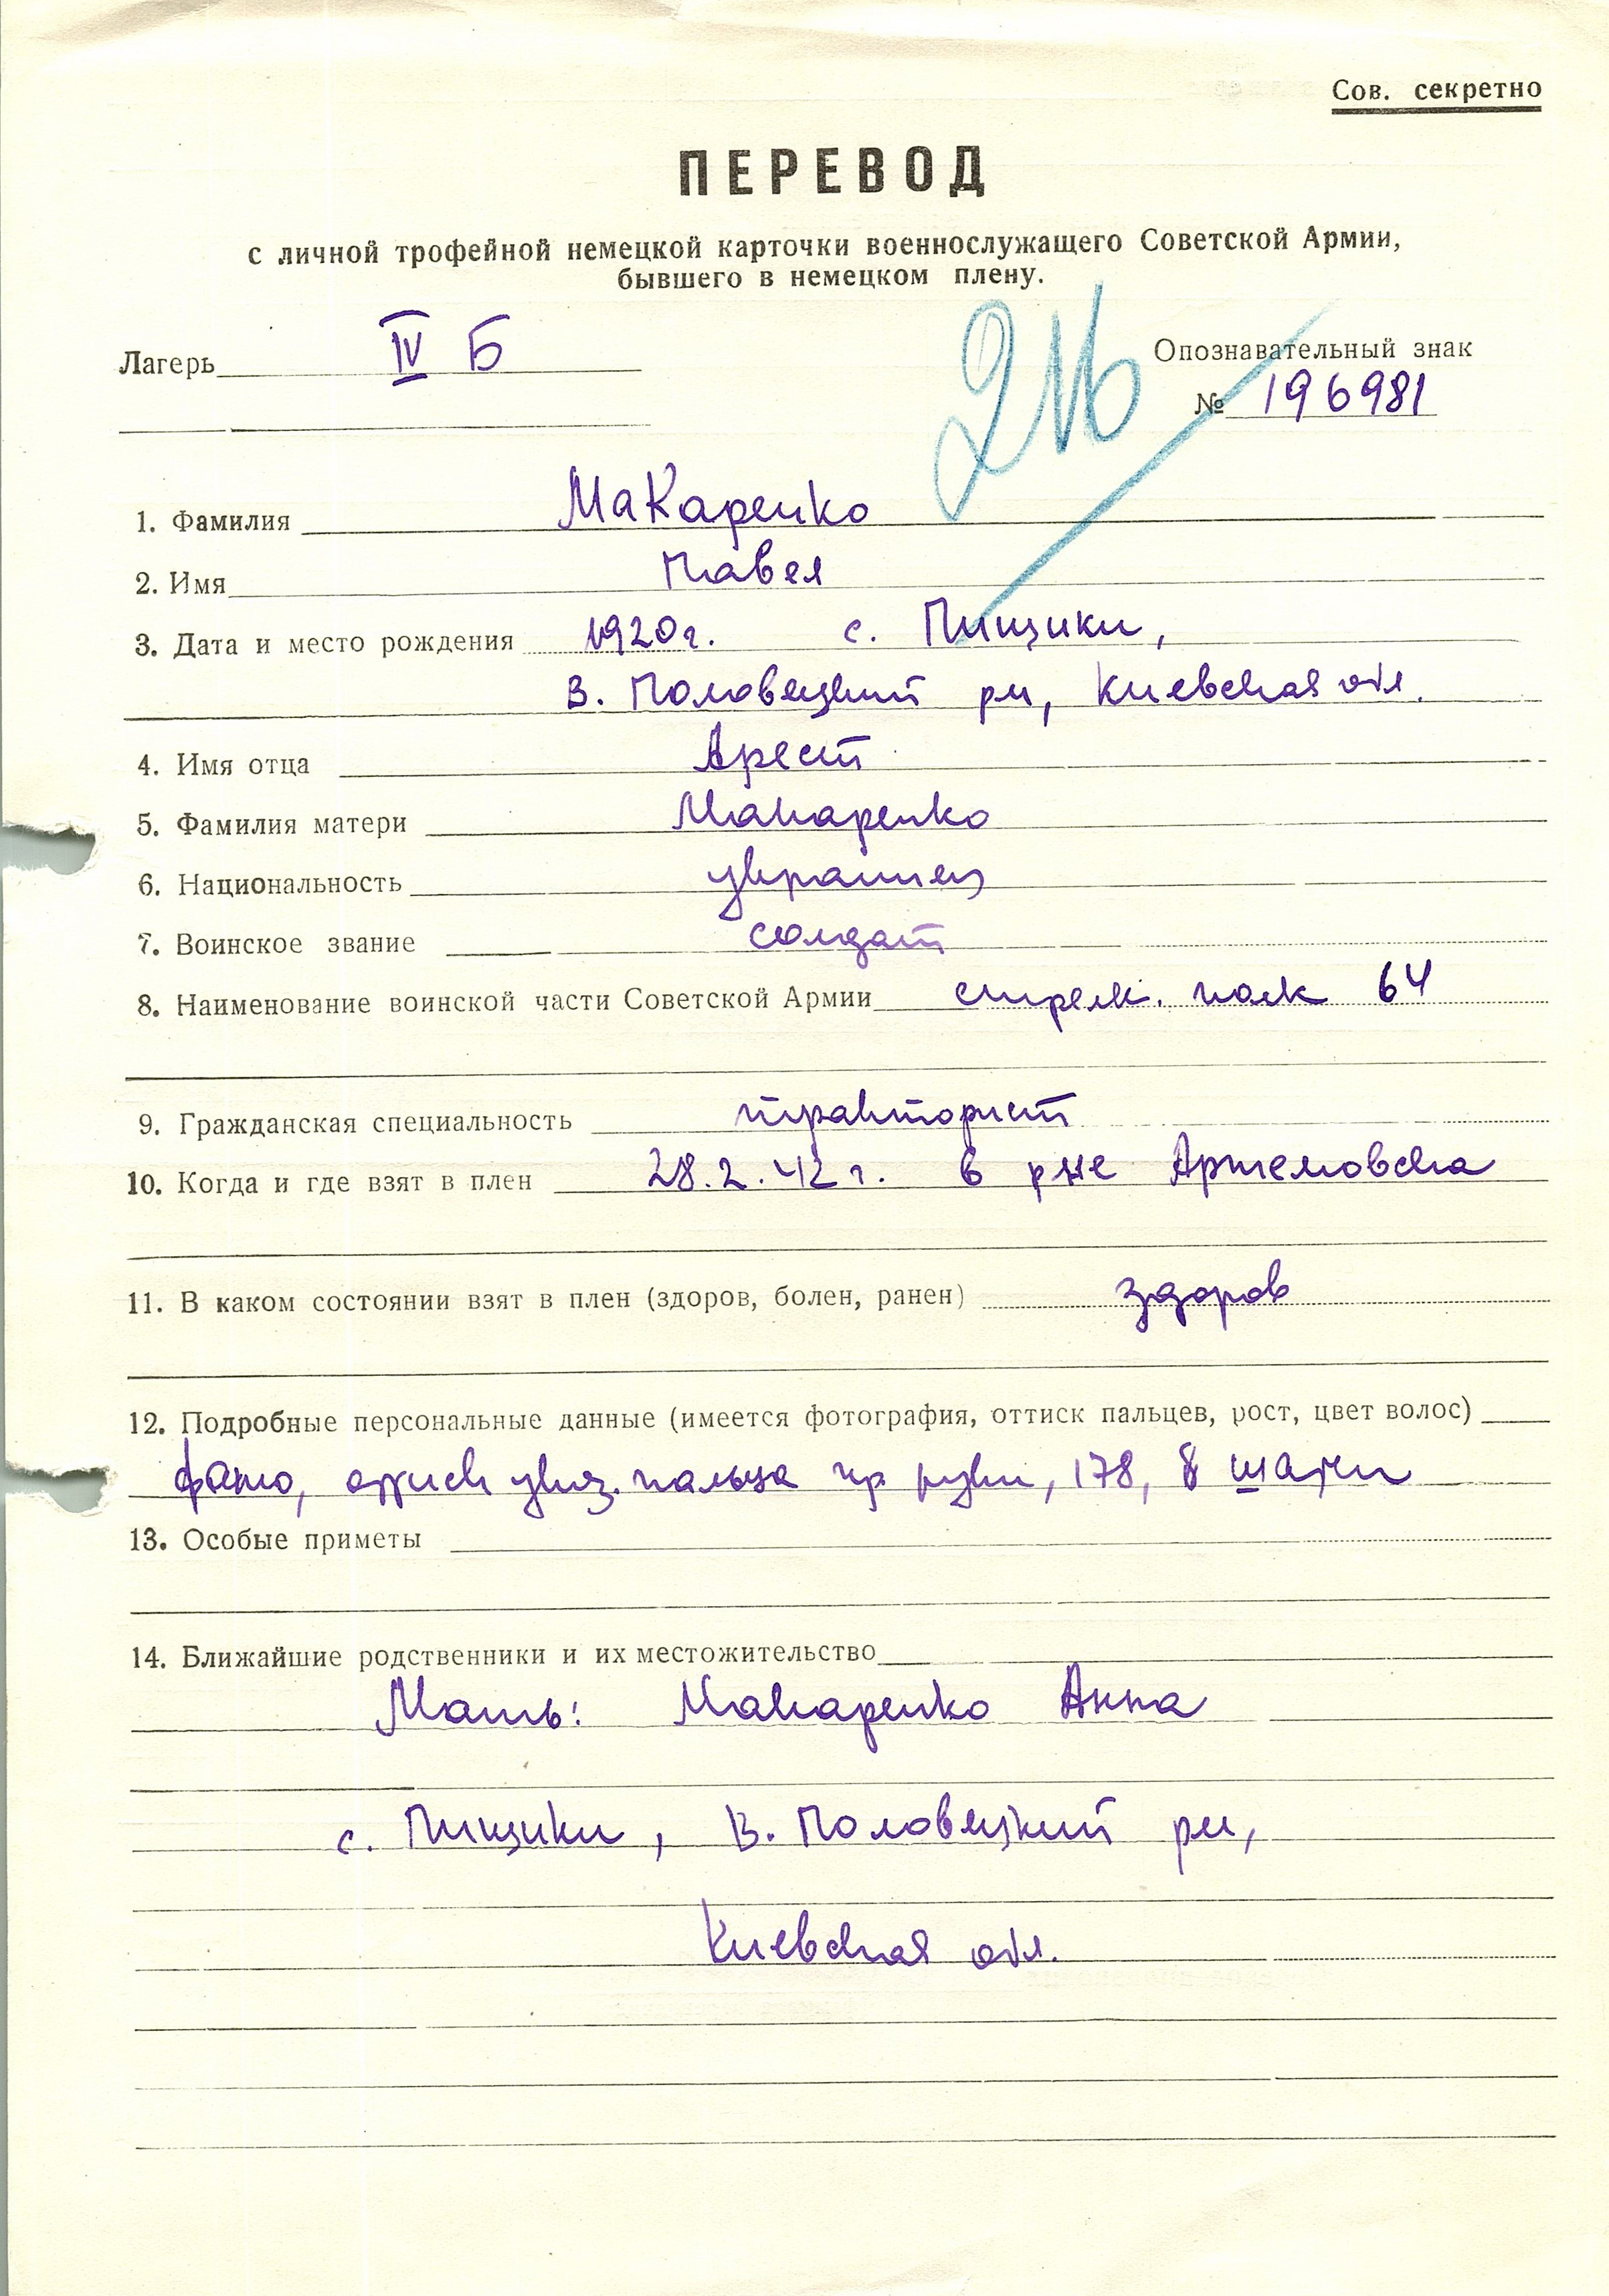 Сов. секретно
ПЕРЕВОД
с личной трофейной немецкой карточки военнослужащего Советской Армии,
бывшего в немецком плену.
Лагерь IV Б
Опознавательный знак
№ 196981
1. Фамилия Макаренко
2. Имя Павел
3. Дата и место рождения 1920 г. с. Пищики,
В. Половецкий рн, Киевская обл.
4. Имя отца Арест
5. Фамилия матери Макаренко
6. Национальность украинец
7. Воинское звание солдат
8. Наименование воинской части Советской Армии стрелк. полк 64
9. Гражданская специальность тракторист
10. Когда и где взят в плен 28.2.42 г. в рне Артемовска
11. В каком состоянии взят в плен (здоров, болен, ранен) здоров
12. Подробные персональные данные (имеется фотография, оттиск пальцев, рост, цвет волос)
фото, указ. пальца пр руки, 178,
13. Особые приметы
14. Ближайшие родственники и их местожительство
Мать: Макаренко Анна
с. Пищики, В. Половецкий рн,
Киевская обл.